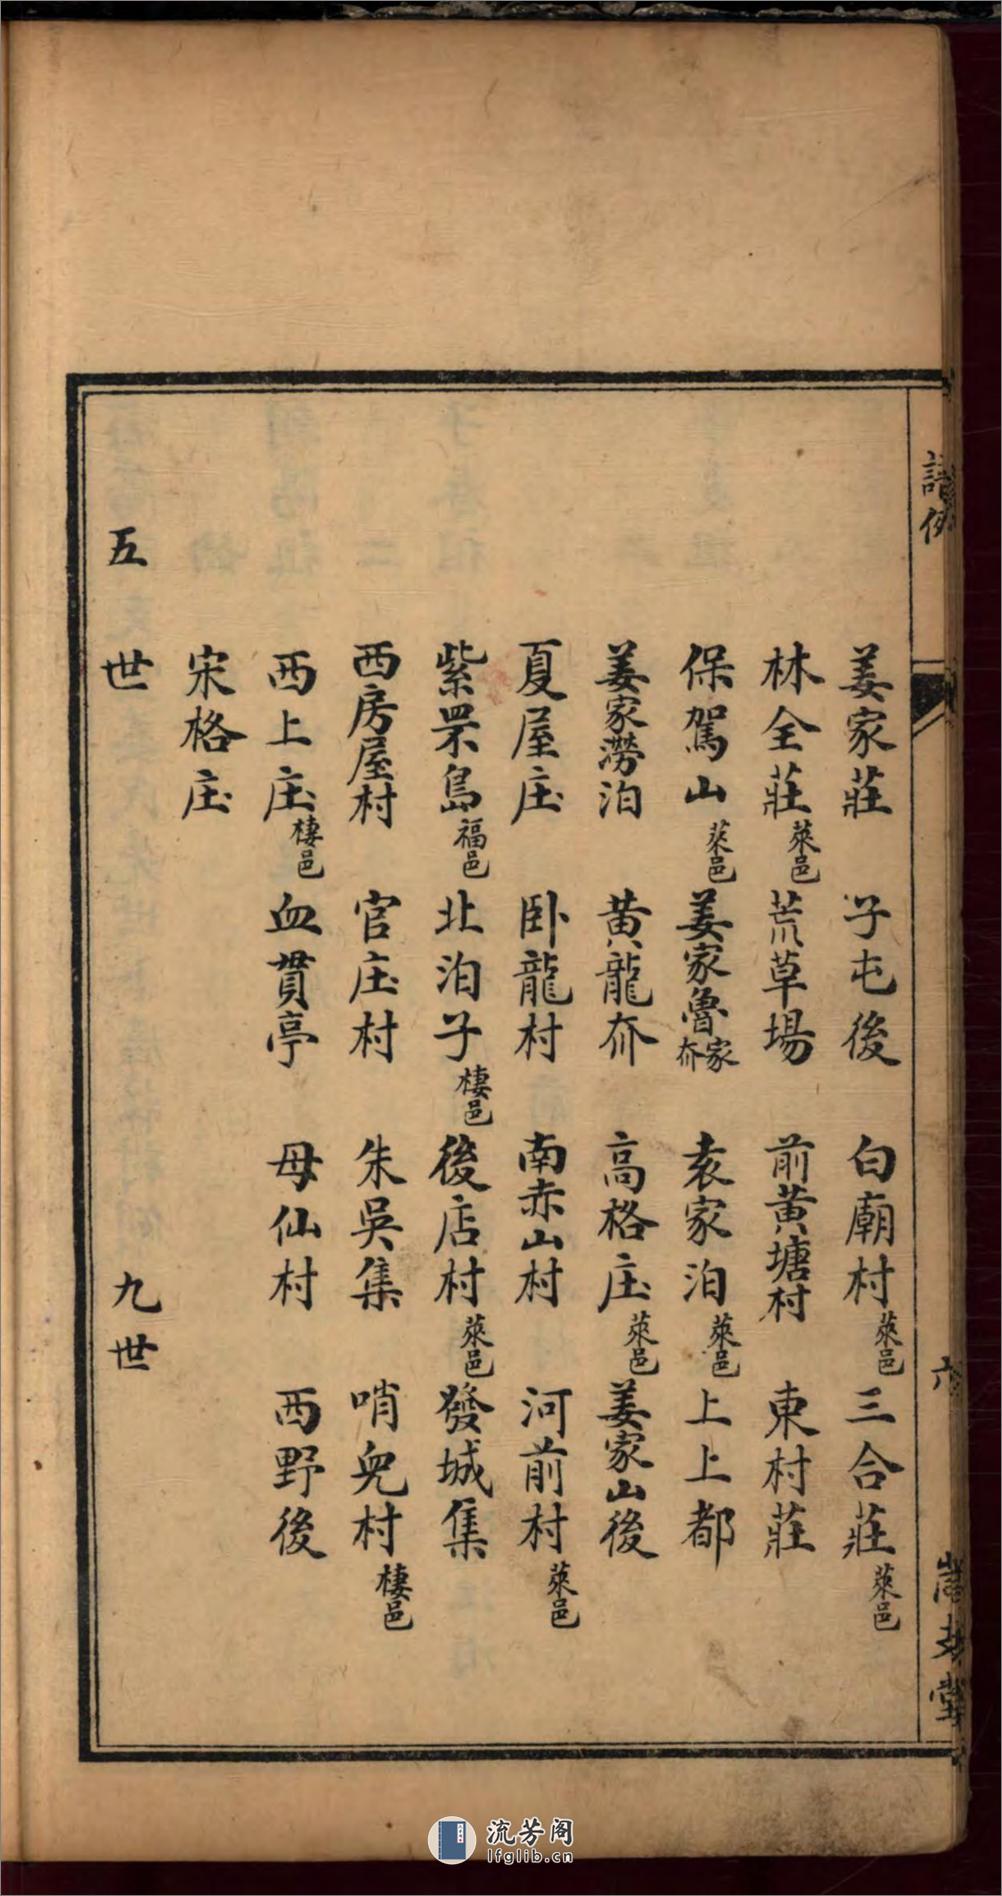 譜例
六
尚友堂
姜家莊 子屯後 白廟村萊邑 三合莊萊邑
林全莊萊邑 荒草場 前黃塘村 東村莊
保駕山萊邑 姜家魯家夼 袁家泊萊邑 上上都
姜家澇泊 黃龍夼 高格庄萊邑 姜家山後
夏屋庄 卧龍村 南赤山村 河前村萊邑
紫罘島福邑 北泊子棲邑 後店村萊邑 發城集
西房屋村 官庄村 朱吳集 哨兒村棲邑
西上庄棲邑 血貫亭 母仙村 西野後
宋格庄
五世 九世
流芳阁
lfglib.cn